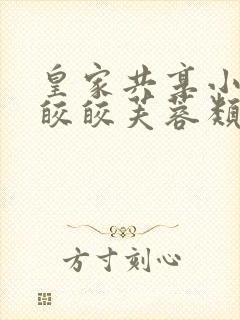 皇家共享小
皎皎芙蓉类
方寸刻心